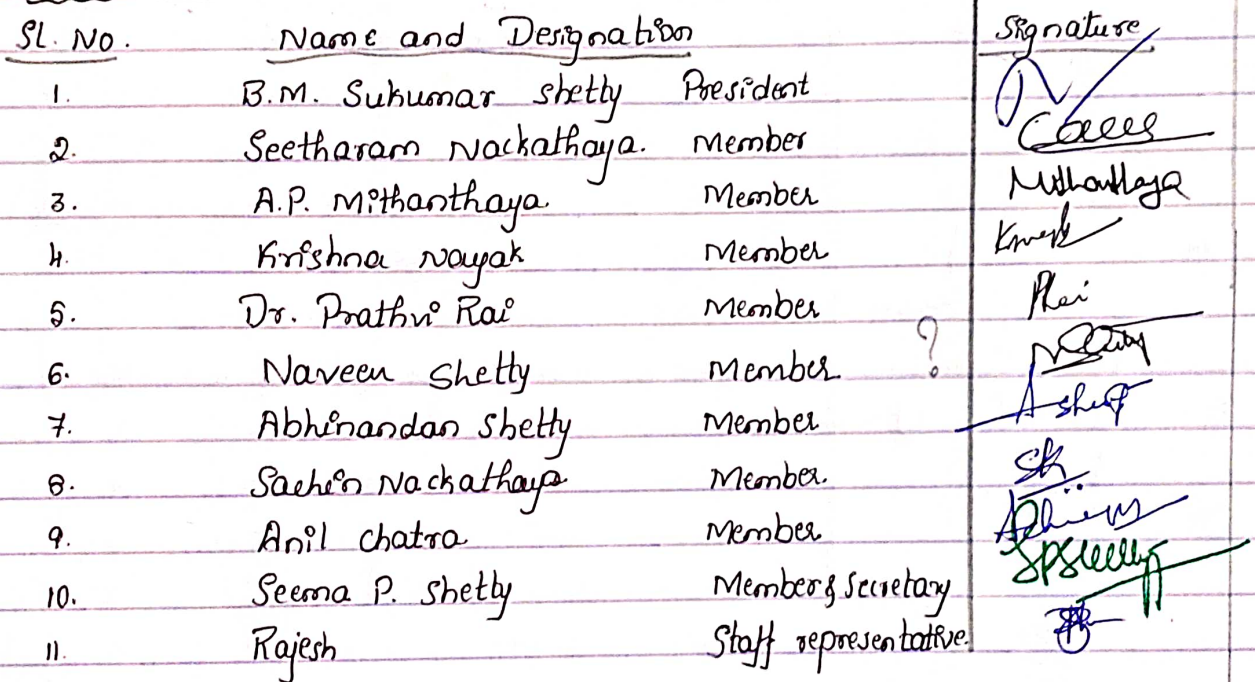 Sl. No. Name and Designation Signature
1. B.M. Sukumar Shetty President
2. Seetharam Nackathaya. Member
3. A.P. Mithanthaya Member Mithanthaya
4. Krishna Nayak Member
5. Dr. Prathvi Rai Member
6. Naveen Shetty Member ?
7. Abhinandan Shetty Member
8. Sachin Nackathaya Member.
9. Anil Chatra Member
10. Seema P. Shetty Member & Secretary SPShetty
11. Rajesh Staff representative